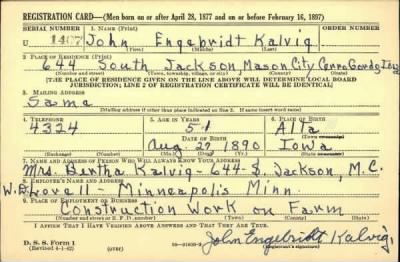 REGISTRATION CARD—(Men born on or after April 28, 1877 and on or before February 16, 1897)
SERIAL NUMBER 1. NAME (Print) ORDER NUMBER
U 1407 John Engebridt Kalvig
(First) (Middle) (Last)
2. PLACE OF RESIDENCE (Print)
644 South Jackson Mason City Cerro Gordo Iowa
(Number and street) (Town, township, village, or city) (County) (State)
[THE PLACE OF RESIDENCE GIVEN ON THE LINE ABOVE WILL DETERMINE LOCAL BOARD
JURISDICTION; LINE 2 OF REGISTRATION CERTIFICATE WILL BE IDENTICAL]
3. MAILING ADDRESS
Same
[Mailing address if other than place indicated on line 2. If same insert word same]
4. TELEPHONE 5. AGE IN YEARS 6. PLACE OF BIRTH
4324 51 Alta
DATE OF BIRTH (Town or county)
Aug. 27 1890 Iowa
(Exchange) (Number) (Mo.) (Day) (Yr.) (State or country)
7. NAME AND ADDRESS OF PERSON WHO WILL ALWAYS KNOW YOUR ADDRESS
Mrs. Bertha Kalvig - 644 - S. Jackson, M.C.
8. EMPLOYER'S NAME AND ADDRESS
Lovell - Minneapolis Minn.
9. PLACE OF EMPLOYMENT OR BUSINESS
Construction Work on Farm
(Number and street or R. F. D. number) (Town) (County) (State)
I AFFIRM THAT I HAVE VERIFIED ABOVE ANSWERS AND THAT THEY ARE TRUE.
D. S. S. Form 1
(Revised 4-1-42) (over) John Engebridt Kalvig,
(Registrant's signature)